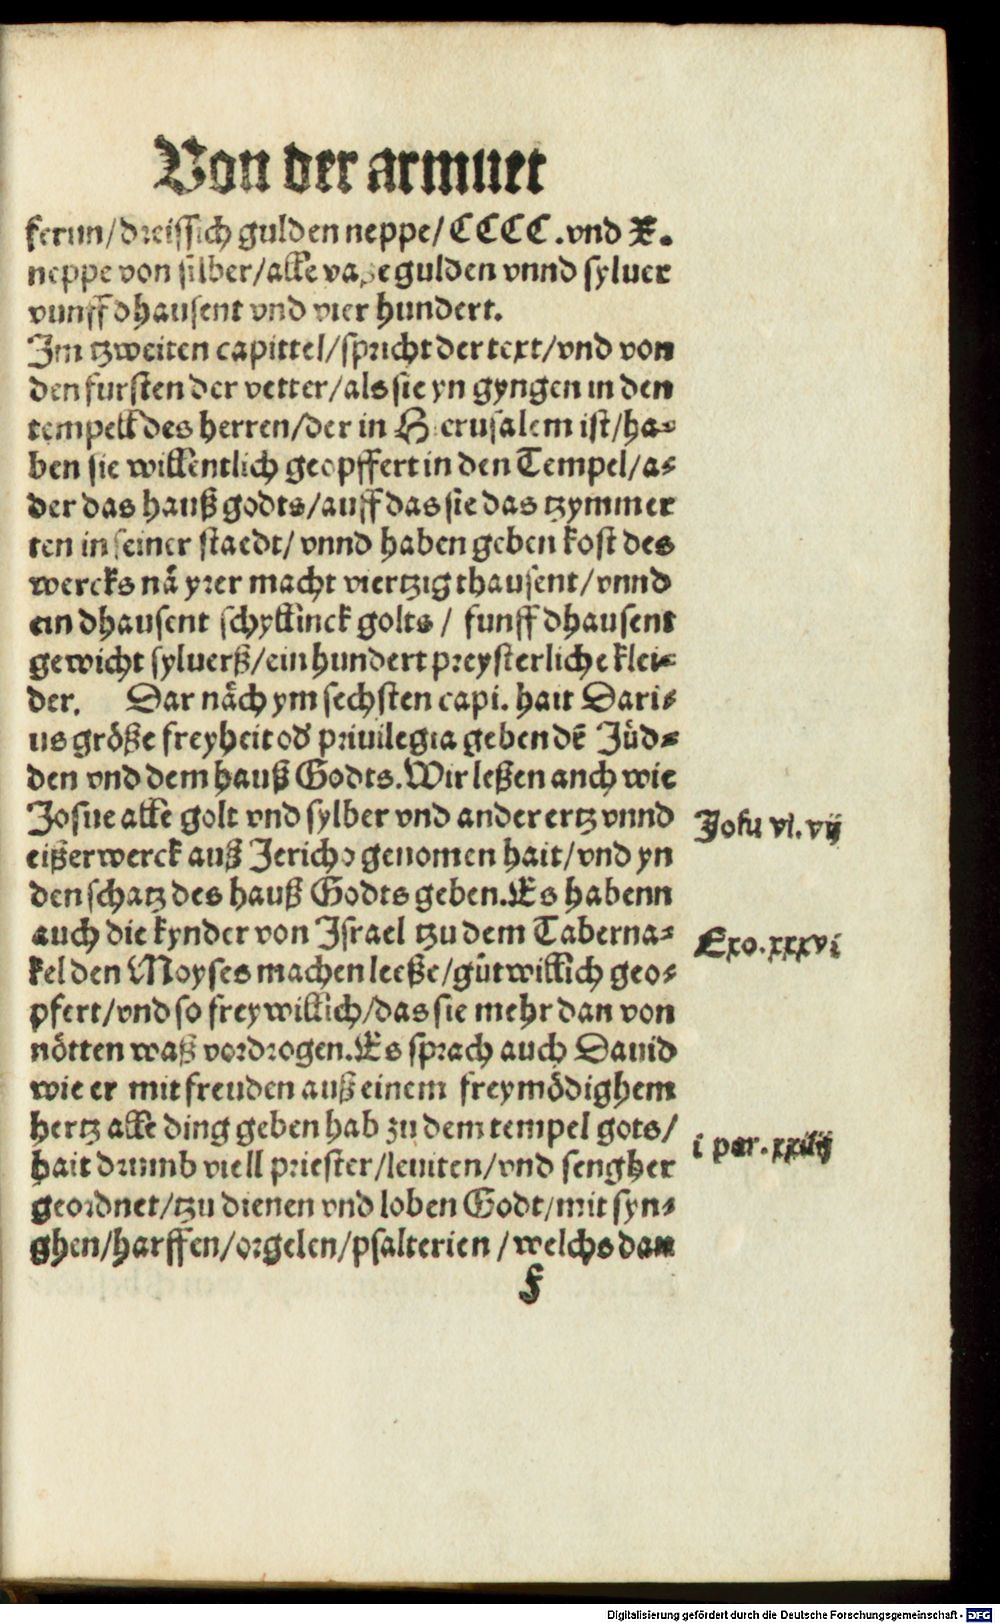 Von der armuet
ferun/dreissich gulden neppe/CCCC.vnd X.
neppe von silber/alle vase gulden vnnd syluer
vunff dhausent vnd vier hundert.
Im tzweiten capittel/spricht der text/vnd von
den fursten der vetter/als sie yn gyngen in den
tempell des herren/der in Hierusalem ist/ha-
ben sie willentlich geopffert in den Tempel/a-
der das hauß godts/auff das sie das tzymmer
ten in seiner staedt/vnnd haben geben kost des
wercks nā yrer macht viertzig thausent/vnnd
ein dhausent schyllinck golts / funff dhausent
gewicht syluerß/ein hundert preysterliche klei-
der. Dar nåch ym sechsten capi. hait Dari-
us größe freyheit od' priuilegia geben dē Jüd-
den vnd dem hauß Godts.Wir leßen anch wie
Josue alle golt vnd sylber vnd ander ertz vnnd
eißerwerck auß Jericho genomen hait/vnd yn
den schatz des hauß Godts geben.Es habenn
auch die kynder von Israel tzu dem Taberna-
kel den Moyses machen leeße/gůtwillich geo-
pfert/vnd so freywillich/das sie mehr dan von
nötten waß vordrogen.Es sprach auch Dauid
wie er mit freuden auß einem freymödighem
hertz alle ding geben hab zu dem tempel gots/
hait drumb viell priester/leuiten/vnd sengher
geordnet/tzu dienen vnd loben Godt/mit syn-
ghen/harffen/orgelen/psalterien /welchs dan
F
Josu vi. vij
Exo.xxxvi
i par.xxiiij
Digitalisierung gefördert durch die Deutsche Forschungsgemeinschaft - DFG